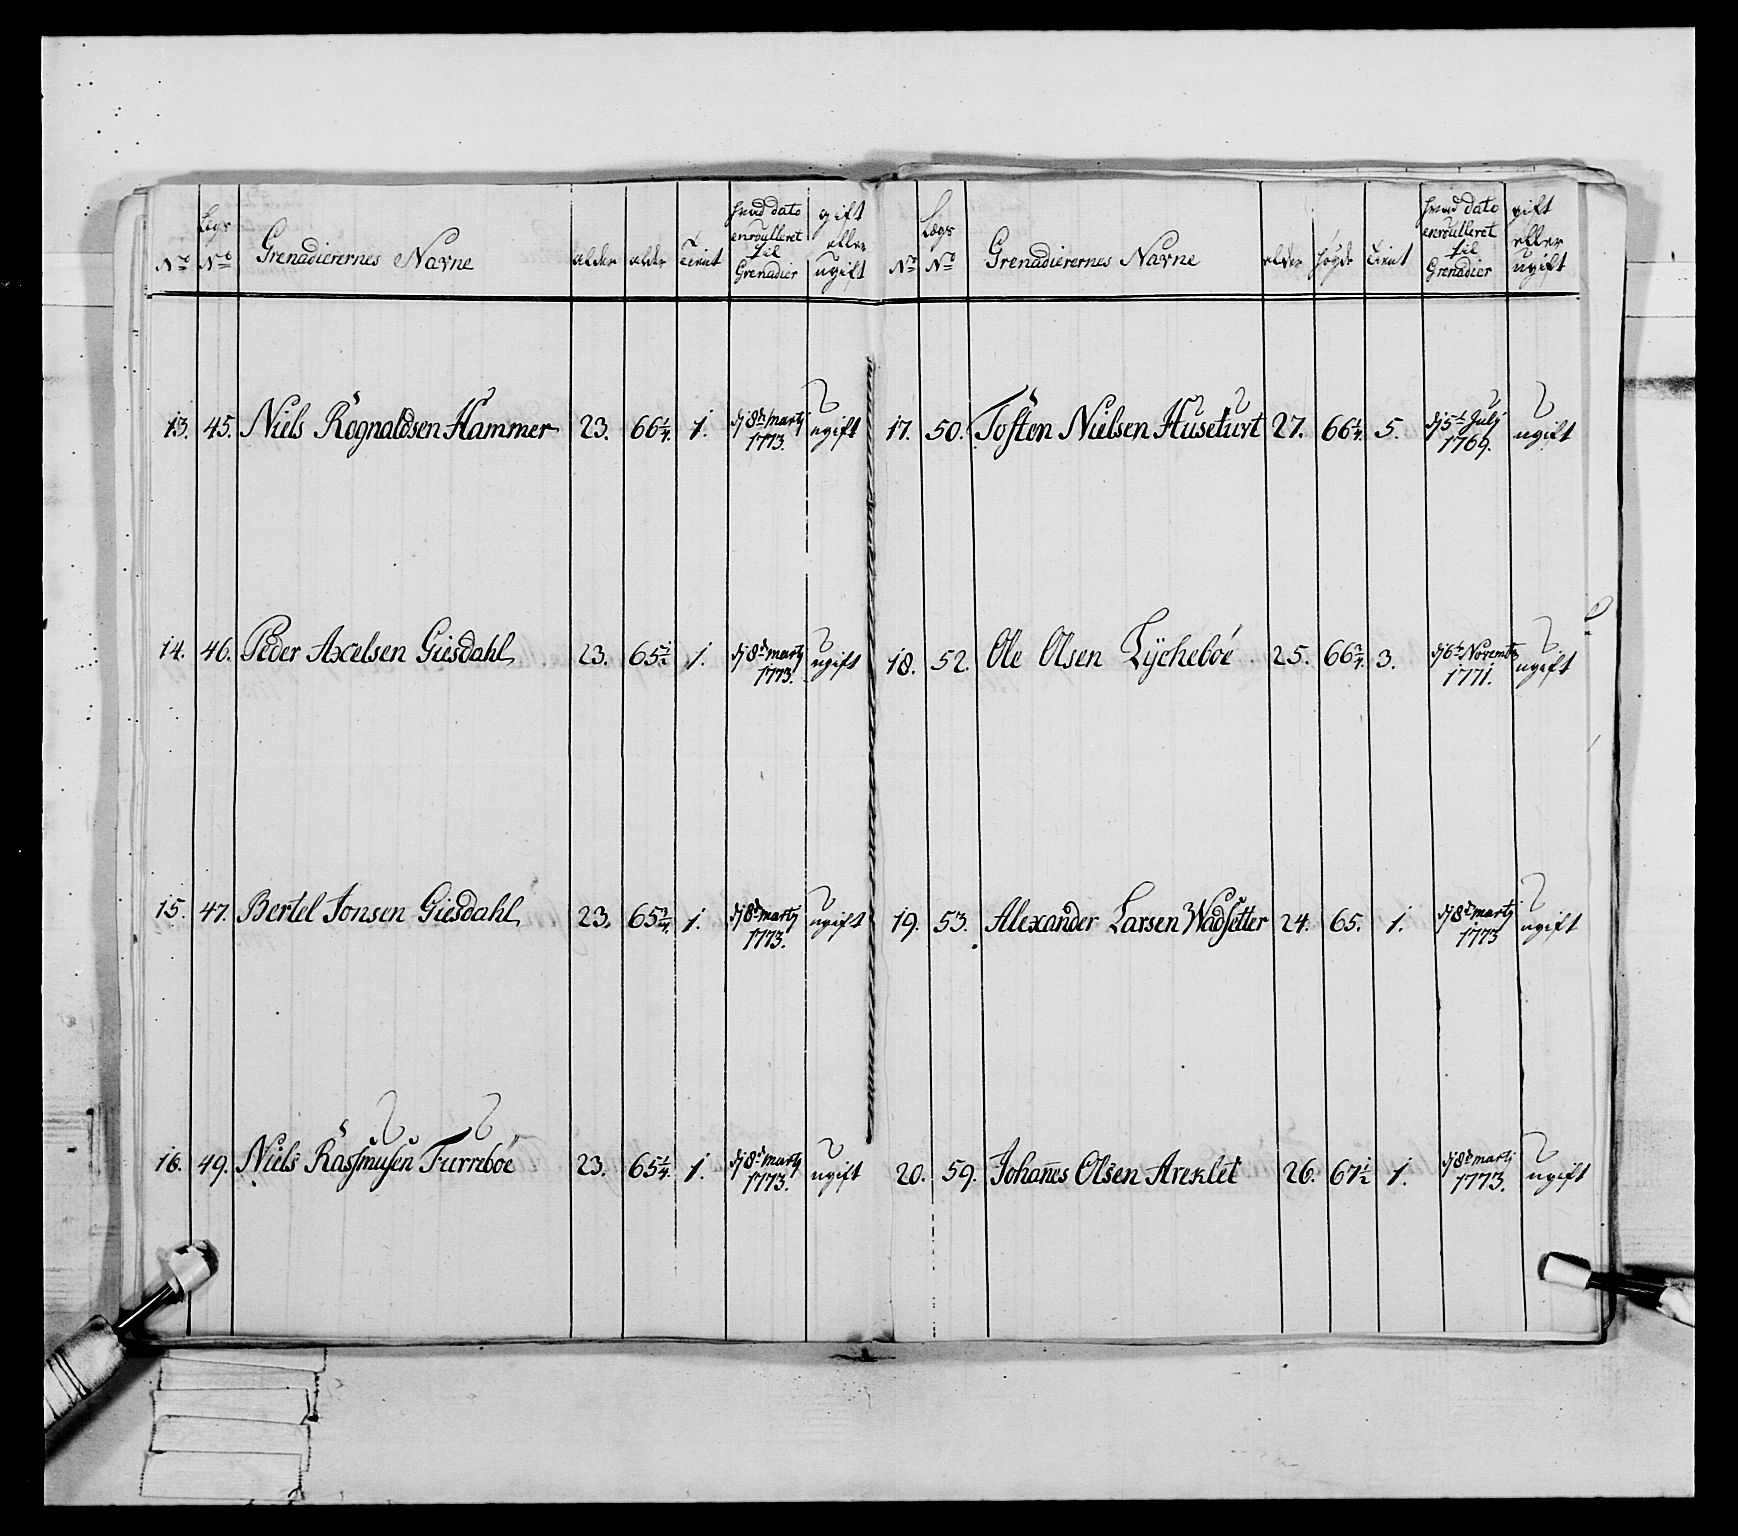 No Legs No Grenadierernes Navne alder alder Tient hvad dato enroulleret til Grenadier gift eller ugift
13. 45. Niels Rognaldsen Hammer 23. 66 1/4. 1. dj 8de martj 1773. ugift
14. 46. Peder Axelsen Giesdahl 23. 65 1/2 1. dj 8de martj 1773. ugift
15. 47. Bertel Jonsen Giesdahl 23. 65 3/4. 1. dj 8de martj 1773. ugift
16. 49. Niels Rassmusen Furreboe 23. 65 1/4. 1. dj 8de martj 1773. ugift
No Lægs No Grenadierernes Navne alder høyde Tient hvad dato enroulleret til Grenadier gift eller ugift
17. 50. Tosten Nielsen Husetuft 27. 66 1/4. 5. dj 5te Julj 1769. ugift
18. 52. Ole Olsen Lycheboe 25. 66 3/4. 3. dj 6te Novembr 1771. ugift
19. 53. Alexander Larsen Wadsetter 24. 65. 1. dj 8de martj 1773 ugift
20. 59. Johannes Olsen Areklet 26. 67 1/2 1. dj 8de martj 1773. ugift